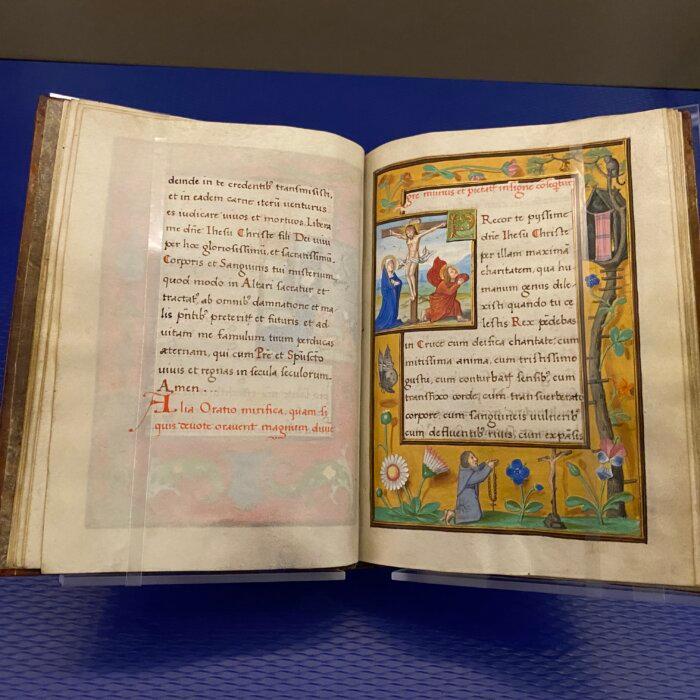 deinde in te credentib⁹ transmisisti,
et in eadem carne iterū venturus
es iudicare viuos et mortuos. Libera
me dn̄e Ihesu Christe fili Dei viui
per hoc gloriosissimū, et sacratissimū
Corporis et Sanguinis tui misterium
quod modo in Altari sacratur et
tractat᷑ ab omnib⁹ damnatione et ma
lis pn̄tib⁹ preterit᷑ et futuris et ad
vitam me famulum tuum perducas
æternam, qui cum Pr̄e et Spūscto
viuis et regnas in secula seculorum
Amen...
Alia Oratio mirifica, quam si
quis deuote orauerit magnum diuie
gre munus et pietat᷑ insigne coleqtur
PRecor te pyssime
dn̄e Ihesu Christe
per illam maximā
charitatem, qua hu
manum genus dile
xisti quando tu ce
lestis Rex pēdebas
in Cruce cum deifica charitate, cum
mitissima anima, cum tristissimo
gustu, cum conturbat᷑ sensib⁹, cum
transfixo corde, cum transuerberato
corpore, cum sanguineis vulnerib⁹
cum defluentib⁹ riuis, cum expāsis